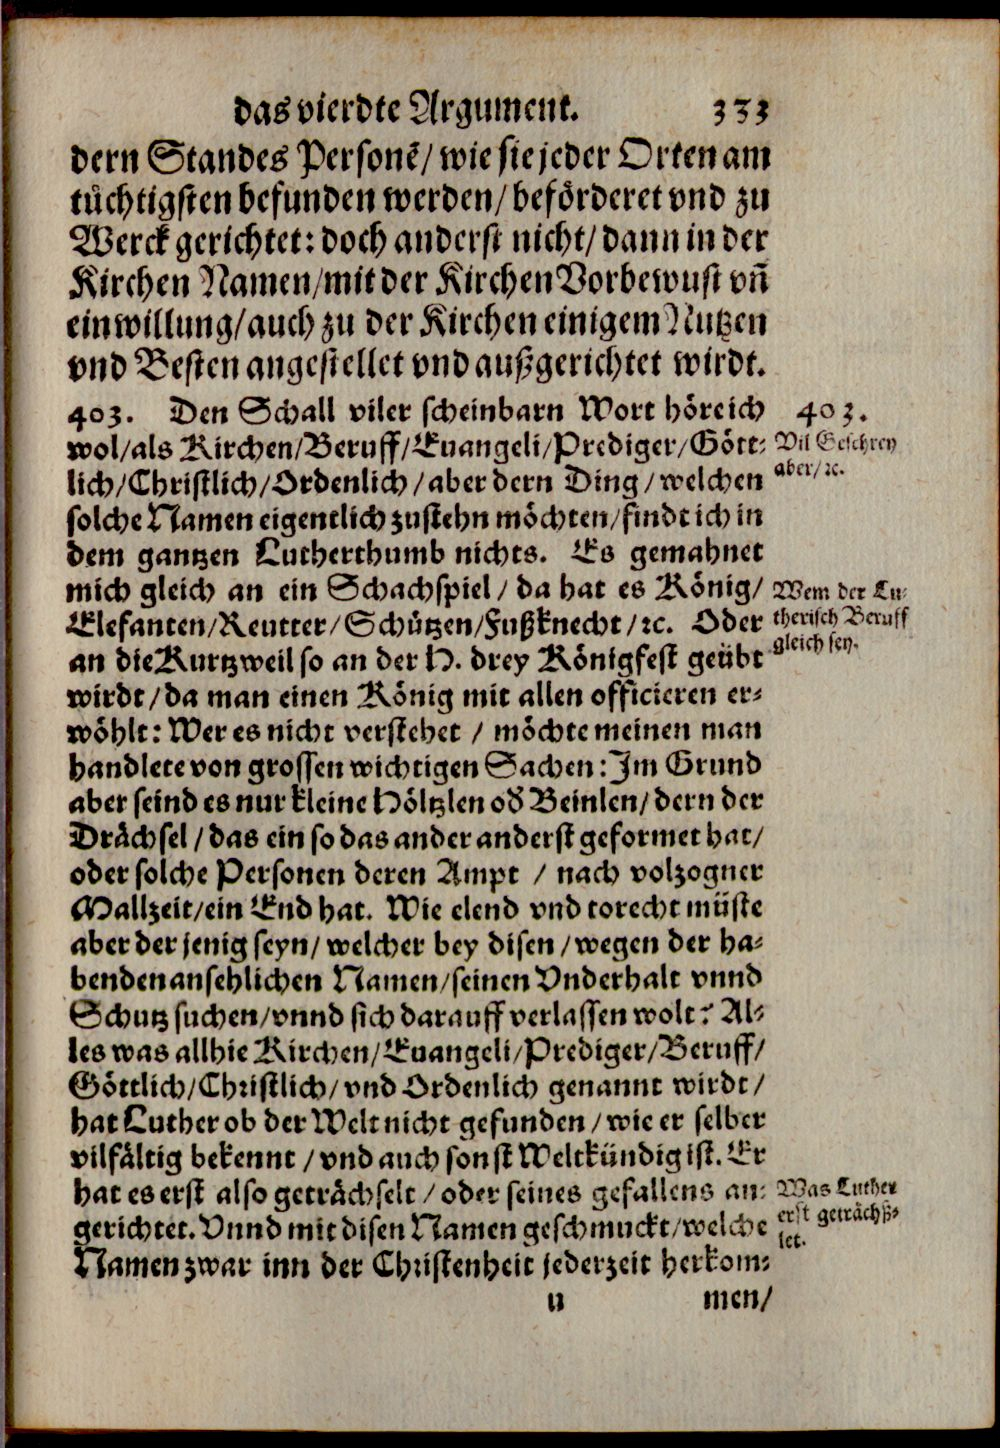 das vierdte Argument. 333
dern Standes Personẽ/ wie sie jeder Orten am
tüchtigsten befunden werden/ beförderet vnd zu
Werck gerichtet: doch anderst nicht/ dann in der
Kirchen Namen/mit der Kirchen Vorbewust vñ
einwillung/auch zu der Kirchen einigem Nutzen
vnd Besten angestellet vnd außgerichtet wirdt.
403. Den Schall viler scheinbarn Wort höre ich
403.
wol/als Kirchen/Beruff/Euangeli/Prediger/Gött-
Vil Geschrey
lich/Christlich/Ordenlich/aber dern Ding/welchen
aber/ꝛc.
solche Namen eigentlich zustehn möchten/findt ich in
dem gantzen Lutherthumb nichts. Es gemahnet
mich gleich an ein Schachspiel/ da hat es König/
Wem der Lu-
Elefanten/Reutter/Schützen/Fußknecht/ꝛc. Oder
therisch Beruff
an die Kurtzweil so an der H. drey Königfest geübt
gleich sey.
wirdt/da man einen König mit allen officieren er-
wöhlt: Wer es nicht verstehet / möchte meinen man
handlete von grossen wichtigen Sachen: Im Grund
aber seind es nur kleine Höltzlen od Beinlen/dern der
Drächsel/das ein so das ander anderst geformet hat/
oder solche Personen deren Ampt / nach volzogner
Mallzeit/ein End hat. Wie elend vnd torecht müste
aber der jenig seyn/ welcher bey disen/wegen der ha-
benden ansehlichen Namen/seinen Vnderhalt vnnd
Schutz suchen/vnnd sich darauff verlassen wolt? Al-
les was allhie Kirchen/Euangeli/Prediger/Beruff/
Göttlich/Christlich/vnd Ordenlich genannt wirdt/
hat Luther ob der Welt nicht gefunden/wie er selber
vilfältig bekennt/vnd auch sonst Weltkündig ist. Er
hat es erst also geträchselt/oder seines gefallens an-
Was Luther
gerichtet. Vnnd mit disen Namen geschmuckt/welche
erst geträchß-
let.
Namen zwar inn der Christenheit jederzeit herkom-
u men/